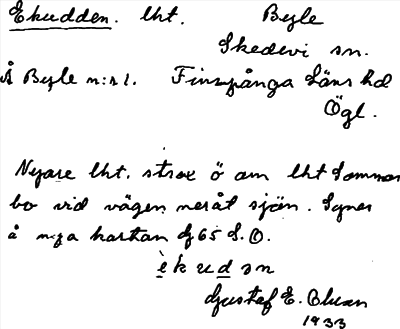 Ekudden. lht. Bysle
Skedevi sn.
Å Bysle n:s 1. Finspånga Läns hd
Ögl.
Nyare lht. strax ö om lht Sommar
bo vid vägen neråt sjön. Synes
å nya kartan bj 65 S.O.
è k u d ə n
Gustaf E.
1933